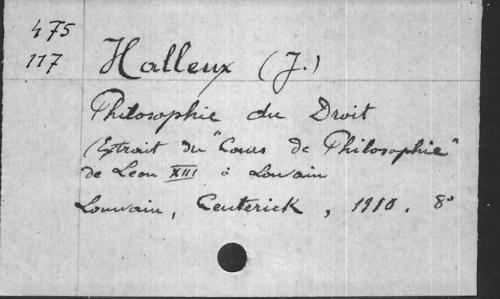 475
117
Halleux (J.)
Philosophie du Droit
(Extrait du "Cours de Philosophie"
de Leon XIII à Louvain
Louvain, Ceuterick, 1910. 8°